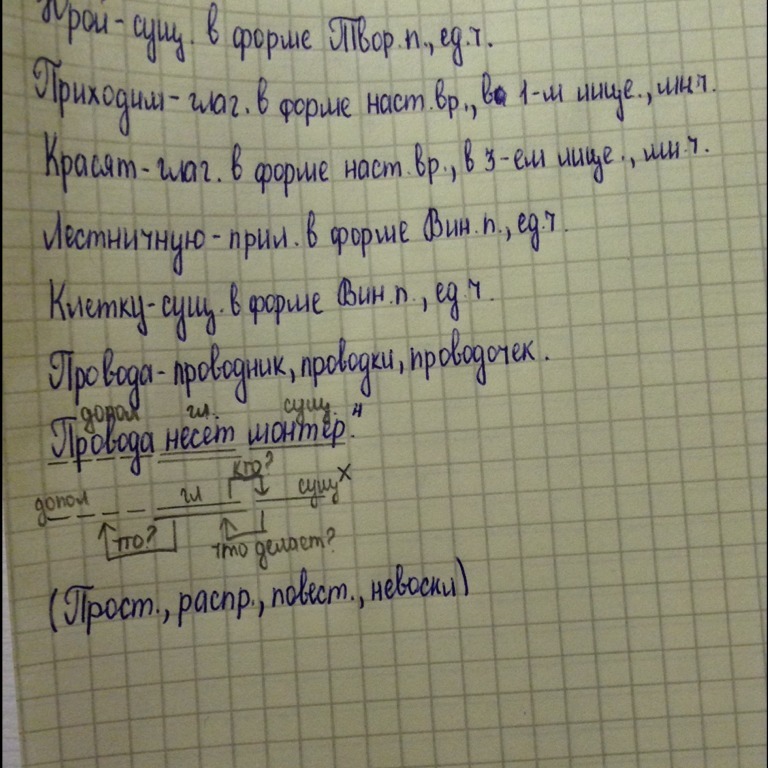 сущ. в форме Твор.п., ед.ч.
Приходим - глаг. в форме наст.вр., в 1-м лице., мн.ч.
Красят - глаг. в форме наст.вр., в 3-ем лице., мн.ч.
Лестничную - прил. в форме Вин.п., ед.ч.
Клетку - сущ. в форме Вин.п., ед.ч.
Провода - проводник, проводки, проводочек.
допол гл. сущ.
Провода несёт монтёр.⁴
кто?
допол гл сущ х
что? что делает?
(Прост., распр., повест., невоскл)